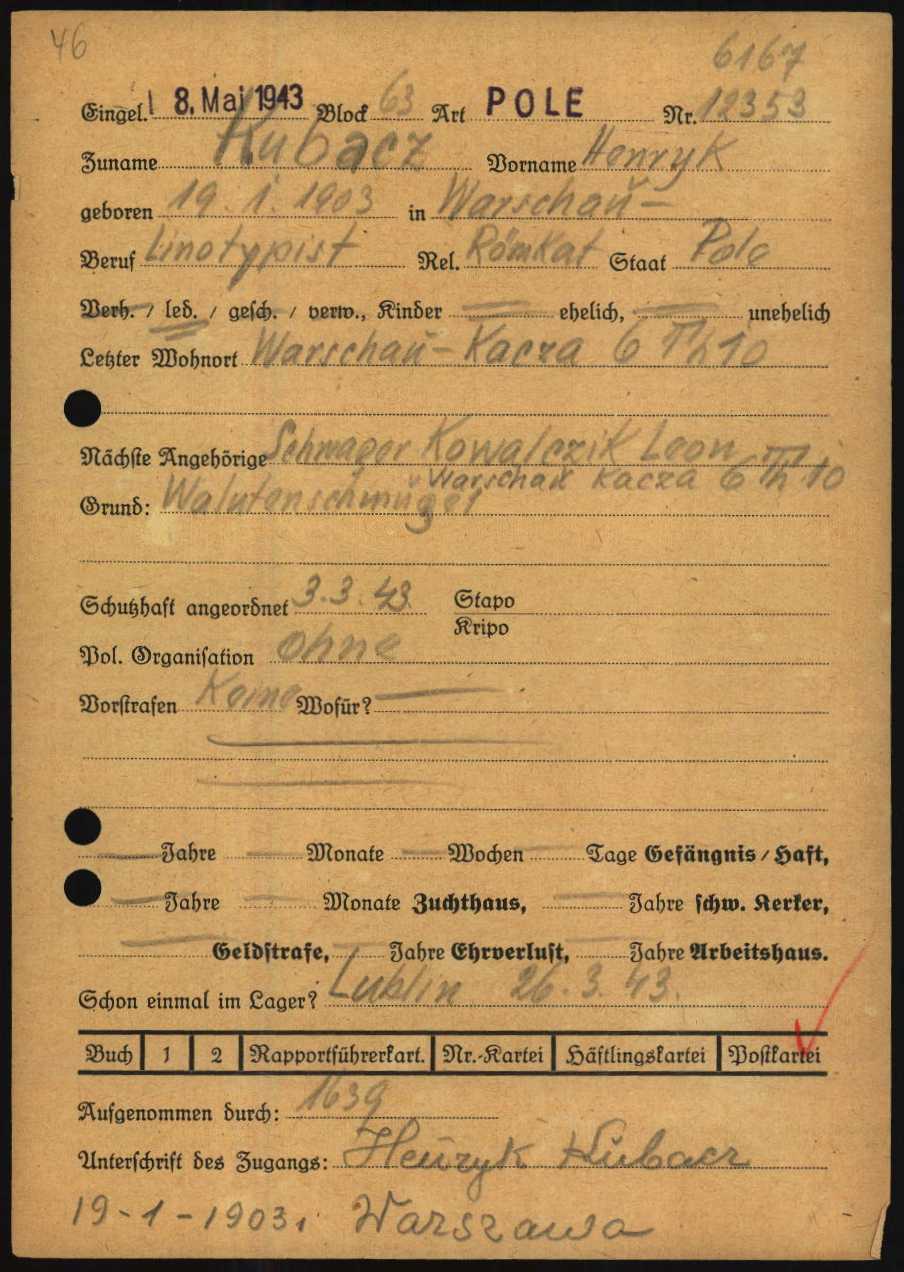 46
6167
Eingel. 8. Mai 1943 Block 63 Art POLE Nr. 12353
Zuname Kubacz Vorname Henryk
geboren 19. 1. 1903 in Warschau –
Beruf Linotypist Rel. RömKat Staat Pole
Verh. / led. / gesch. / verw., Kinder ehelich, unehelich
Letzter Wohnort Warschau – Kacza 6 Th 10
Nächste Angehörige Schwager Kowalczik Leon
Warschau Kacza 6 Th 10
Grund:
Schutzhaft angeordnet 3. 3. 43. Stapo
Kripo
Pol. Organisation ohne
Vorstrafen Keine Wofür?
Jahre Monate Wochen Tage Gefängnis / Haft,
Jahre Monate Zuchthaus, Jahre schw. Kerker,
Geldstrafe, Jahre Ehrverlust, Jahre Arbeitshaus.
Schon einmal im Lager? Lublin 26. 3. 43.
Buch 1 2 Rapportführerkart. Nr.-Kartei Häftlingskartei Postkartei
Aufgenommen durch: 1639
Unterschrift des Zugangs: Henryk Kubacz
19 - 1 - 1903. Warszawa